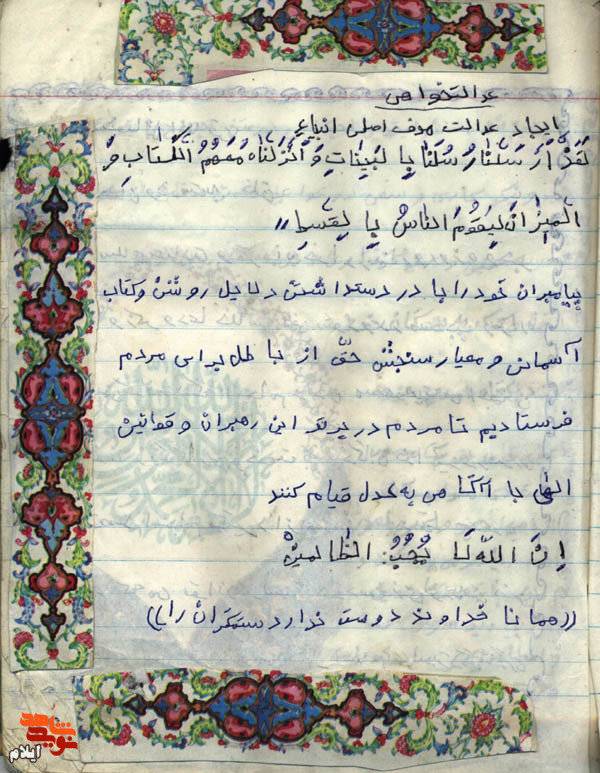 عدالتخواهی
ایجاد عدالت هدف اصلی انبیاء
لَقَدْ اَرْسَلْنٰا رُسُلَنٰا بِا لبَیِّنٰاتِ وَ اَنْزَلْنٰاهُ مَعَهُمُ الْكِتابِ وَ
الْمیِزٰانَ لِیَقُوُمَ الناسُ بِا لقِسطِ "
پیامبران خود را با در دستداشتن دلایل روشن و کتاب
آسمانی و معیار سنجش حقّ از باطل برای مردم
فرستادیم تا مردم در پرتو این رهبران و قوانین
الهی با آگاهی به عدل قیام کنند
اِنَّ اللّهَ لَا یُحِبُّ الظّالمینْ
((همانا خداوند دوست ندارد ستمگران را))
نوید شاهد
ایلام